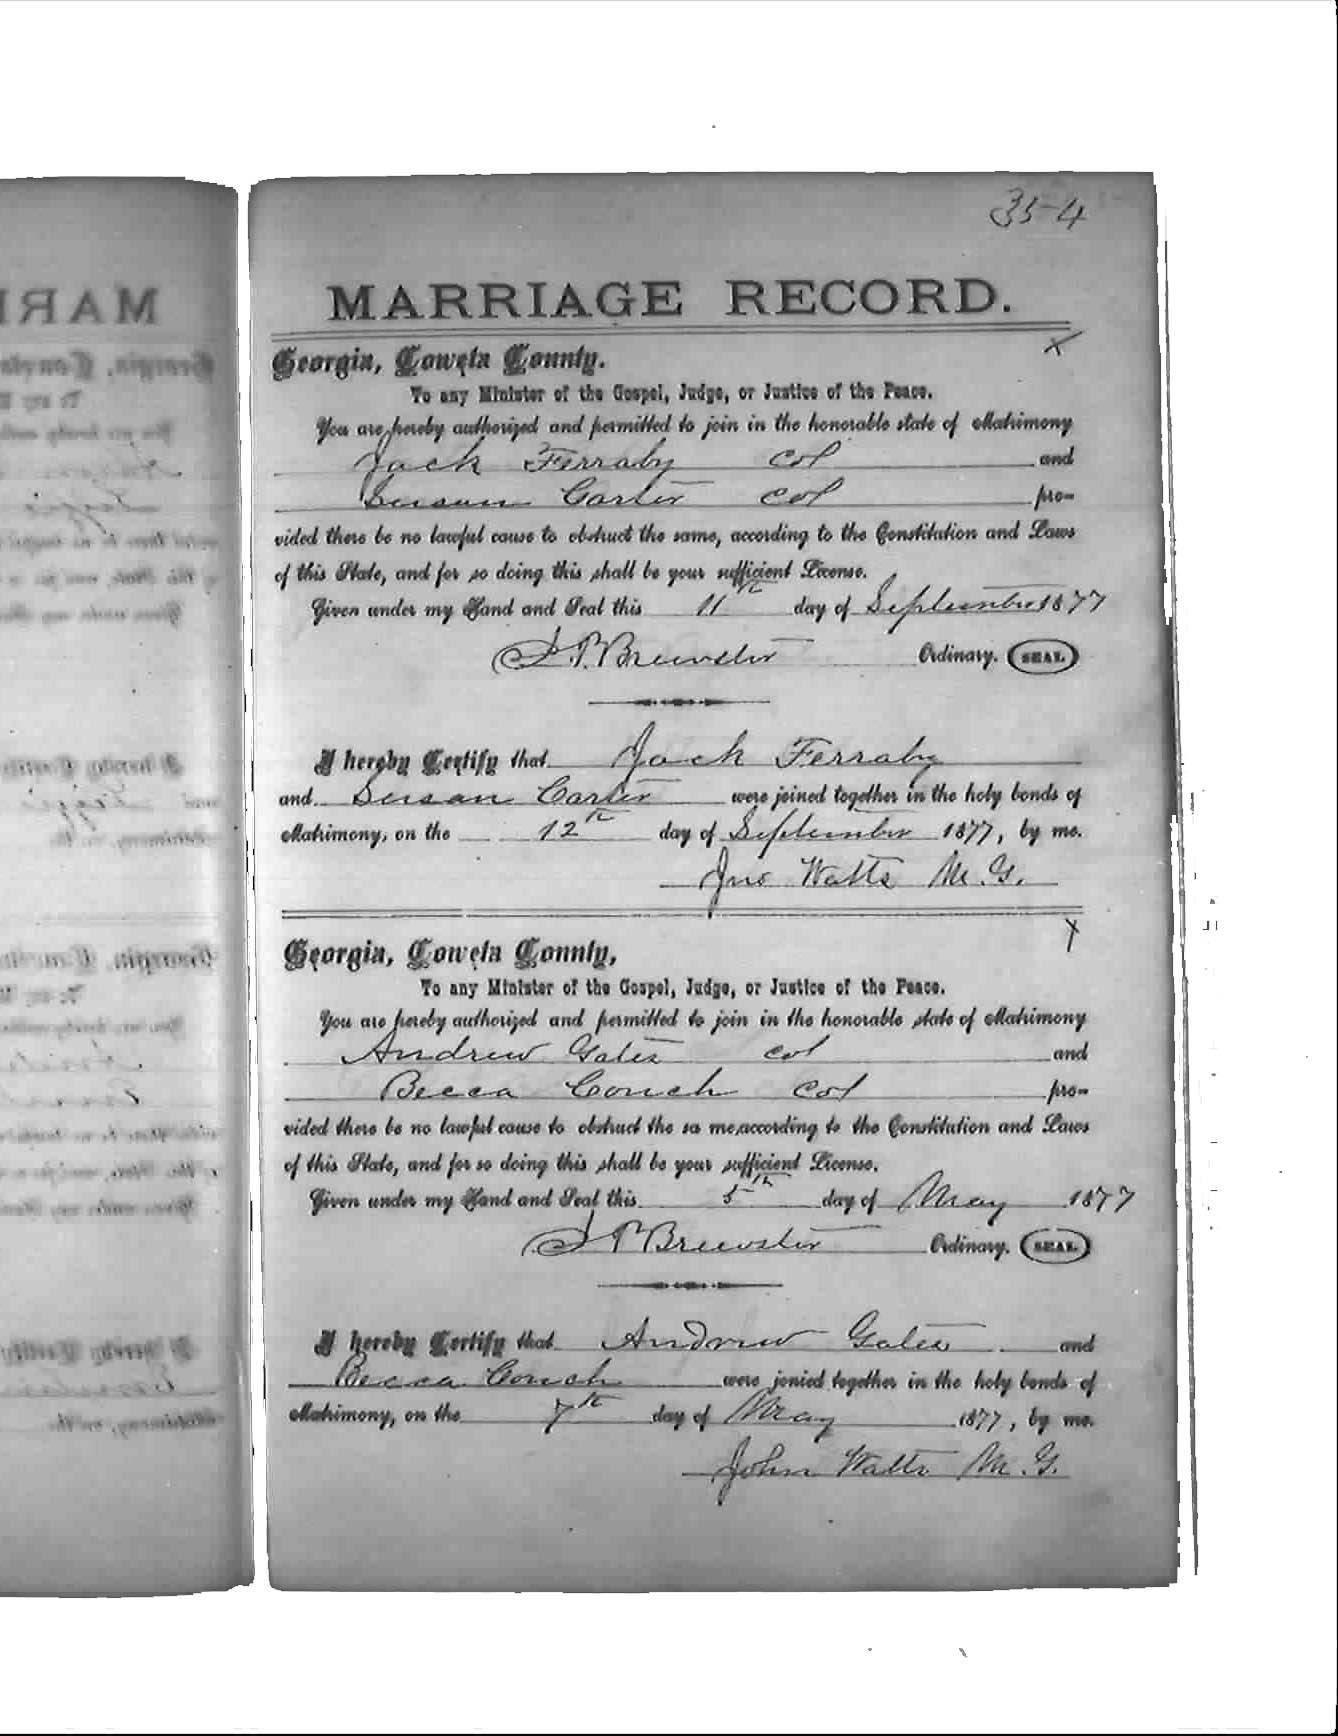 354
MARRIAGE RECORD.
x
Georgia, Coweta County.
To any Minister of the Gospel, Judge, or Justice of the Peace.
You are hereby authorized and permitted to join in the honorable state of Matrimony
Jack Ferraby col and
Susan Carter col pro-
vided there be no lawful cause to obstruct the same, according to the Constitution and Laws
of this State, and for so doing this shall be your sufficient License.
Given under my Hand and Seal this 11th day of September 1877
J. P. Brewster Ordinary. SEAL
I hereby Certify that Jack Ferraby
and Susan Carter were joined together in the holy bonds of
Matrimony, on the 12th day of September 1877, by me.
Jno Watts M. G.
x
Georgia, Coweta County,
To any Minister of the Gospel, Judge, or Justice of the Peace.
You are hereby authorized and permitted to join in the honorable state of Matrimony
Andrew Gates col and
Becca Couch col pro-
vided there be no lawful cause to obstruct the sa me, according to the Constitution and Laws
of this State, and for so doing this shall be your sufficient License.
Given under my Hand and Seal this 5th day of May 1877
J P Brewster Ordinary. SEAL
I hereby Certify that Andrew Gates and
Becca Couch were jonied together in the holy bonds of
Matrimony, on the 7th day of May 1877, by me.
John Watts M. G.